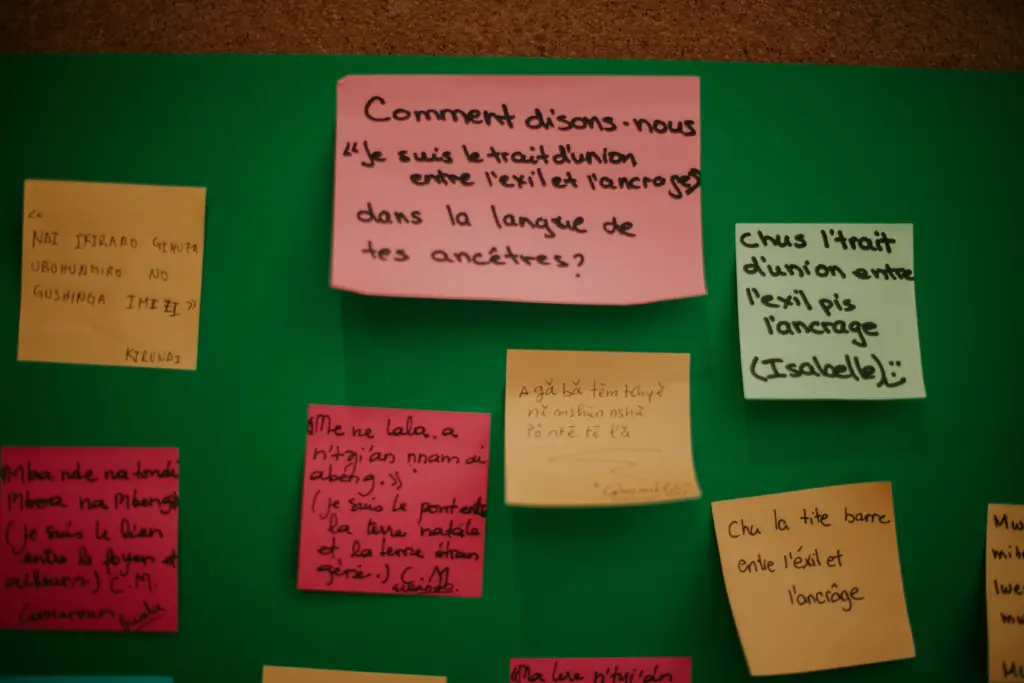 Comment disons-nous
"Je suis le trait d'union
entre l'exil et l'ancrage»
dans la langue de
tes ancêtres?
«
NDI IKIRARO GIHUZA
UBUHUNGIRO NO
GUSHINGA IMIZI »
KIRUNDI
Chus l'trait
d'union entre
l'exil pis
l'ancrage
(Isabelle) :)
A gă bă tēm
nĭ mshēn nshē
«Me ne lala. a
n'tyi'an nnam ai
abeng.»
(je suis le pont entre
la terre natale
et la terre étran
gère.) C.M
«Mba nde na tondi
Mboa na Mbeng»
(je suis le lien
entre le foyer et
ailleurs.) C.M.
(cameroun
Chu la tite barre
entre l'éxil et
l'ancrâge